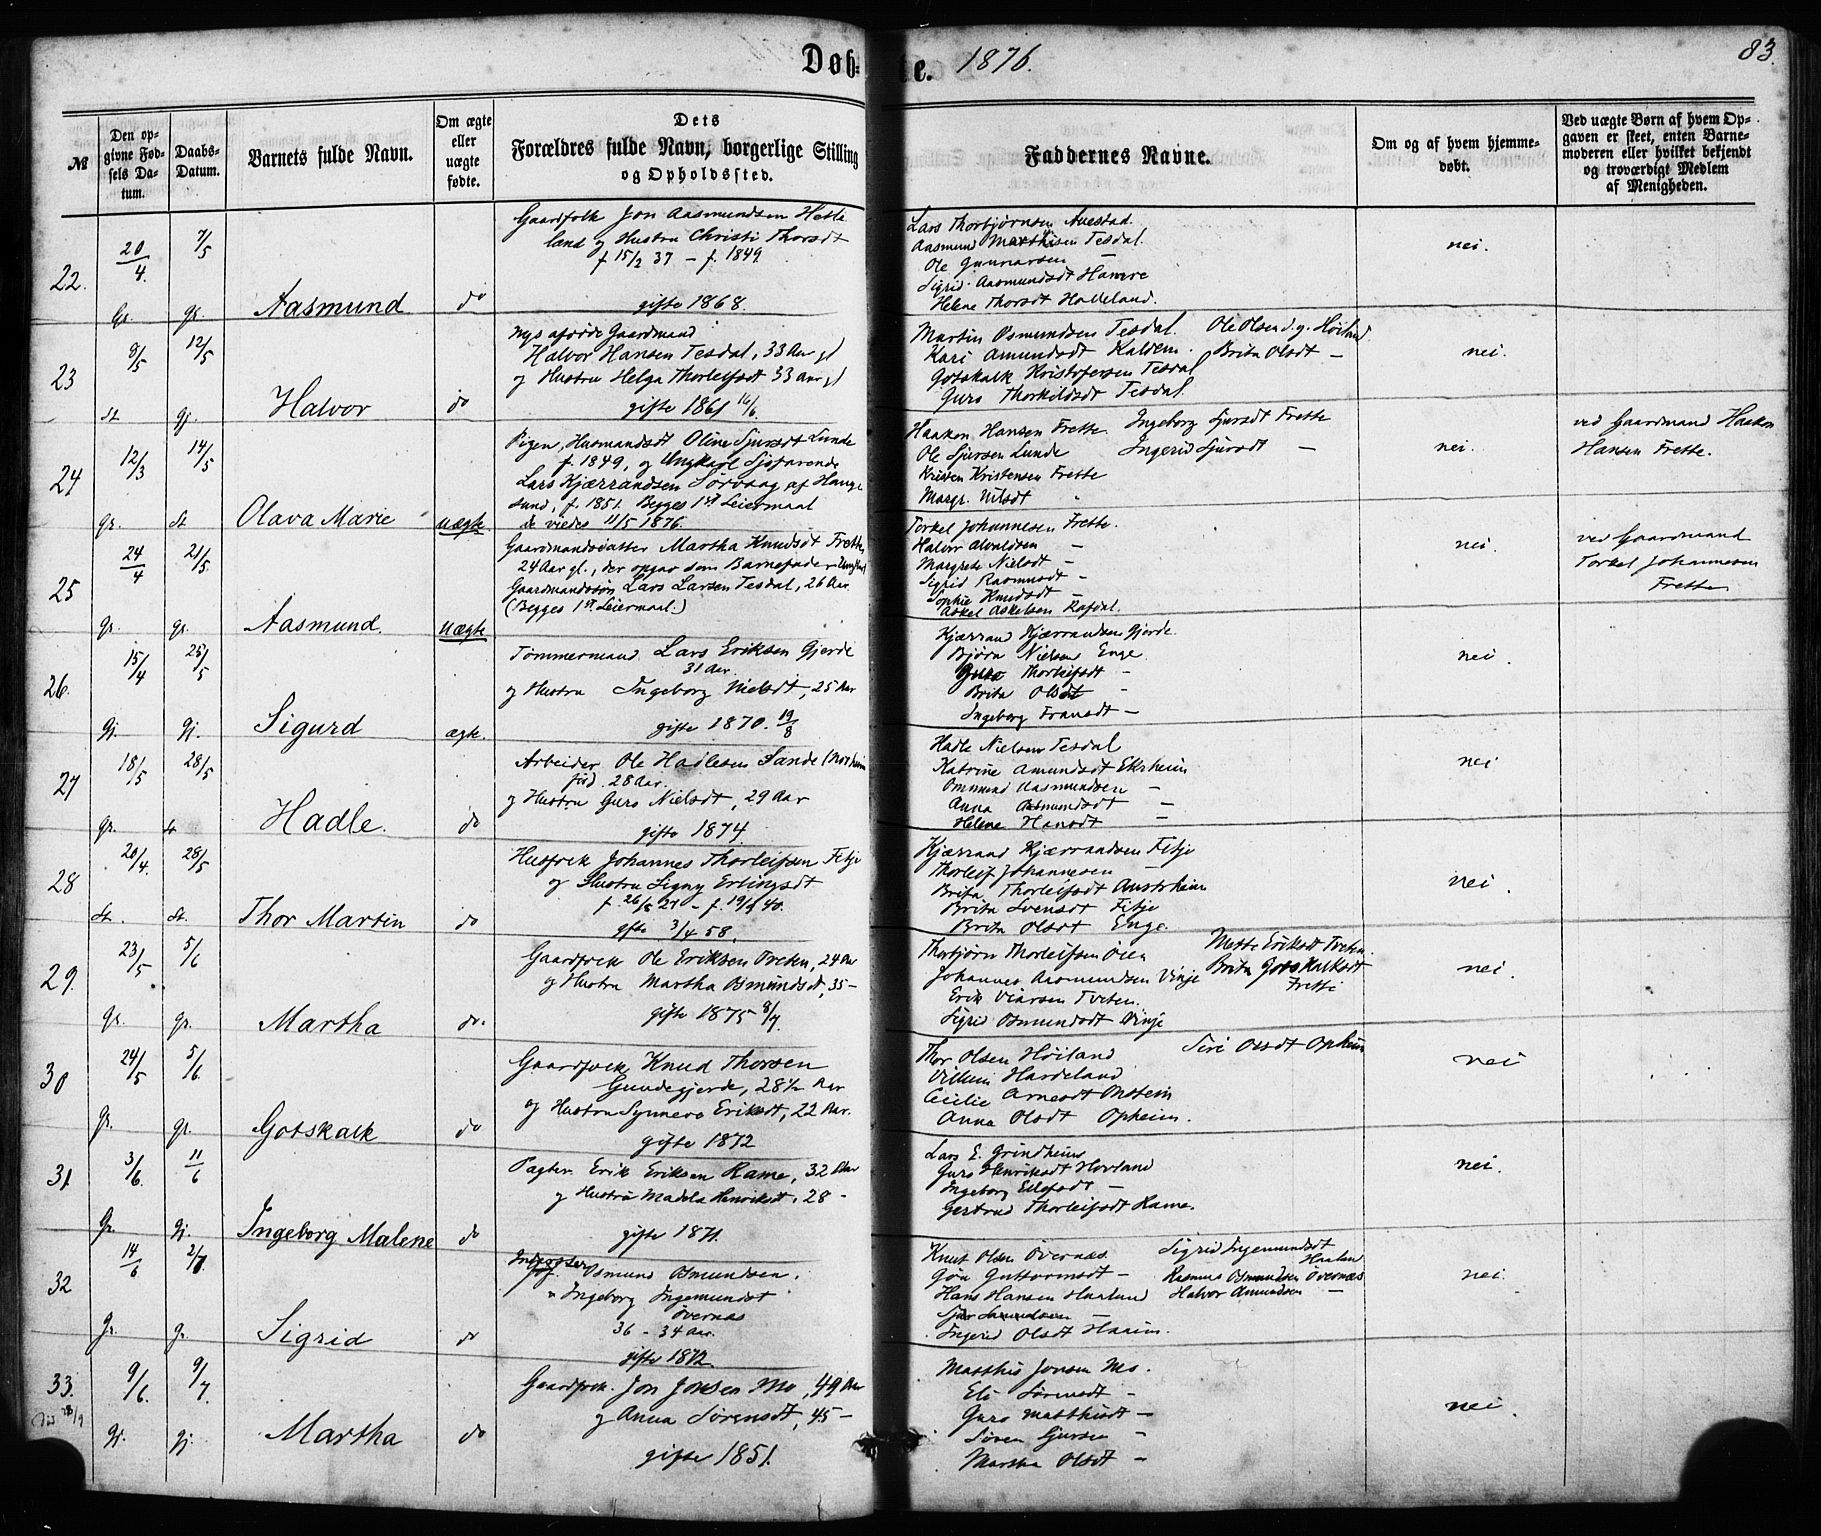 Døb-
te. 1876. 83.
№
Den opgivne Fødsels Datum.
Daabs-Datum.
Barnets fulde Navn.
Om ægte eller uægte fødte.
Dets Forældres fulde Navn, borgerlige Stilling og Opholdssted.
Faddernes Navne.
Om og af hvem hjemmedøbt.
Ved uægte Børn af hvem Opgaven er skeet, enten Barnemoderen eller hvilket bekjendt og troværdigt Medlem af Menigheden.
22. 20/4. 7/5 Aasmund do
Gaardfolk Jon Aasmundsen Hette
land og Hustru Christi Thorsdt
f 15/2 37 – f. 1849
gifte 1868.
Lars Thorbjørnsen Auestad.
Aasmund Matthisen Tesdal.
Ole Gunnarsen –
Sigrid Aasmundsdt Hamre
Helene Thorsdt Halleland.
nei.
23 8/5 12/5 Halvor do
Nys afdøde Gaardmand
Halvor Hansen Tesdal, 33 Aar gl
og Hustru Helga Thorleifsdt 33 aar gl
gifte 1861 16/6.
Martin Osmundsen Tesdal. Ole Olsen d.y. Høiland
Kari Amundsdt Kaldem. Brita Olsdt –
Gotskalk Kristofersen Tesdal
Guro Thorkildsdt Tesdal.
nei.
24 12/3 14/5 Olava Marie uægte.
Pigen, Husmandsdt Oline Sjursdt Lunde
f. 1849, og Ungkarl Sjøfarende
Lars Kjærrandsen Sørvaag af Hauge
sund, f. 1851. Begges 1st Leiermaal
de viedes 11/5 1876.
Haakon Hansen Frette. Ingeborg Sjursdt Frette
Ole Sjursen Lunde Ingerid Sjursdt –
Kristen Kristensen Frette
Margr. Nilsdt "
nei.
ved Gaardmand Haakon
Hansen Frette.
25 24/4 21/5. Aasmund. Uægte
Gaardmandsdatter Martha Knudsdt Frette,
24 Aar gl., der opgav som Barnefader Ungkarl
Gaardmandssøn Lars Larsen Tesdal, 26 Aar
(Begges 1st Leiermaal.)
Torkel Johannesen Frette.
Halvor Alvaldsen –
Margrete Nielsdt –
Sigrid Rasmusdt –
Sophie Knudsdt –
Askel Askelsen Rafdal.
nei.
ved Gaardmand
Torkel Johannesen
Frette
26. 15/4 25/5 Sigurd ægte.
Tømmermand Lars Eriksen Gjerde
31 Aar.
og Hustru Ingeborg Nielsdt, 25 Aar
gifte 1870. 19/8
Kjærrand Kjærrandsen Gjerde.
Bjørn Nielsen Enge.
Guro Thorleifsdt –
Brita Olsdt –
Ingeborg Fransdt –
nei.
27 18/5 28/5 Hadle. do
Arbeider Ole Hadlesen Sande
28 Aar.
og Hustru Guro Nielsdt, 29 Aar
gifte 1874
Hadle Nielsen Tesdal
Katrine Amundsdt Ekrheim
Ommund Aasmundsen –
Anna Asmundsdt –
Helene Hansdt –
nei
28 20/4. 28/5 Thor Martin do
Husfolk Johannes Thorleifsen Fitje
og Hustru Signy Erlingsdt
gifte 3/4 58.
Kjærrand Kjærrandsen Fitje
Thorleif Johannesen
Brita Thorleifsdt Austrheim
Brita Svensdt Fitje
Brita Olsdt Enge.
nei.
29. 23/5 5/6 Martha do.
Gaardfolk Ole Eriksen Tveten, 24 Aar
og Hustru Martha Osmundsdt, 35 –
gifte 1875 8/7.
Thorbjørn Thorleifsen Øien Mette Eriksdt Tveten.
Johannes Aasmundsen Vinje Brita Gotskalksdt
Frette
Erik Viarsen Tveten.
Sigrid Osmundsdt Vinje
nei.
30 24/5 5/6. Gotskalk do
Gaardfolk Knud Thorsen
Gundegjerde, 28½ Aar
og Hustru Synneva Eriksdt, 22 Aar.
gifte 1872
Thor Olsen Høiland Siri Olsdt Opheim
Vilhem Hardeland
Cecilie Arnesdt Østein
Anna Olsdt Opheim.
nei
31 3/6. 11/6 Ingeborg Malene do
Pagter Erik Eriksen Rame, 32 Aar
og Hustru Madela Henriksdt, 28 –
gifte 1871.
Lars E. Grindheim
Guro Henriksdt Hovland
Ingeborg Eilefsdt –
Gertrud Thorleifsdt Rame.
nei.
32 14/6 2/7. Sigrid do
Osmund Osmundsen.
" Ingeborg Ingemundsdt
Øvernæs
36 – 34 Aar.
gifte 1872.
Knut Olsen Øvernæs Sigrid Ingemundsdt
Haaland
Gøn Guttormsdt – Rasmus Osmundsen Øvernæs
Hans Hansen Haaland Halvor Amundsen –
Ingerid Olsdt Haaim.
nei.
33. 9/6. 9/7 Martha do
Gaardfolk. Jon Jonsen Mo, 49 Aar
og Anna Sørensdt, 45 –
gifte 1851.
Matthis Jonsen Mo.
Eli Sørensdt –
Guro Matthisdt –
Søren Sjursen –
Martha Olsdt –
nei.